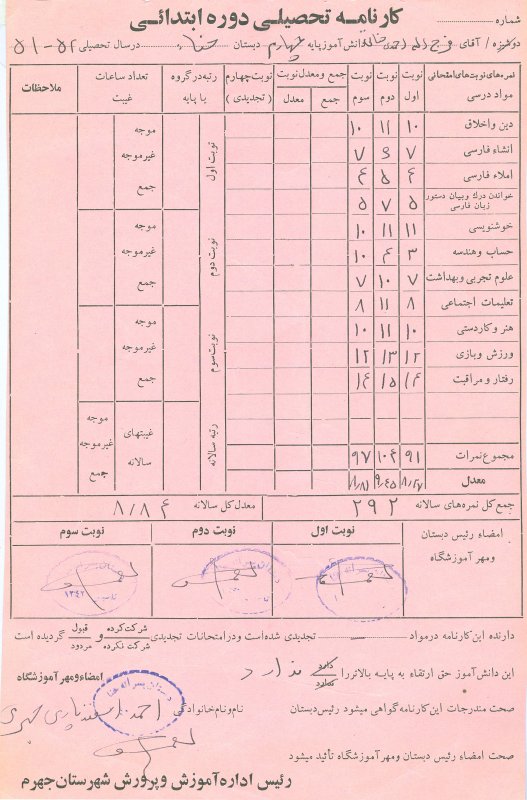 شماره
کارنامه تحصیلی دوره ابتدائی
دوشیزه / آقای دانش‌آموز پایه چهارم دبستان در سال تحصیلی ۵۲-۵۱
نمره‌های نوبت‌های امتحانی
مواد درسی
نوبت اول نوبت دوم نوبت سوم جمع و معدل نوبت نوبت چهارم (تجدیدی) رتبه در گروه یا پایه تعداد ساعات غیبت ملاحظات
جمع معدل
دین و اخلاق ۱۰ ۱۱ ۱۰
انشاء فارسی ۷ ۷
املاء فارسی ۴ ۵ ۴
خواندن درک و بیان دستور زبان فارسی ۵ ۷ ۵
خوشنویسی ۱۱ ۱۱ ۱۰
حساب و هندسه ۳ ۴ ۱۰
علوم تجربی و بهداشت ۷ ۱۰ ۷
تعلیمات اجتماعی ۸ ۱۱ ۸
هنر و کاردستی ۱۰ ۱۱ ۱۰
ورزش و بازی ۱۲ ۱۳ ۱۲
رفتار و مراقبت ۱۴ ۱۵ ۱۴
مجموع نمرات ۹۱ ۱۰۴ ۹۷
معدل ۸/۲۷ ۹/۴۵ ۸/۸۱
نوبت اول
موجه
غیرموجه
جمع
نوبت دوم
موجه
غیرموجه
جمع
نوبت سوم
موجه
غیرموجه
جمع
رتبه سالانه
غیبتهای سالانه
موجه
غیرموجه
جمع
جمع کل نمره‌های سالانه ۲۹۲ معدل کل سالانه ۸/۸۴
امضاء رئیس دبستان و مهر آموزشگاه
نوبت اول نوبت دوم نوبت سوم
۱۳۴۲
دارنده این کارنامه در مواد — تجدیدی شده است و در امتحانات تجدیدی شرکت کرده / شرکت نکرده و قبول / مردود گردیده است
این دانش‌آموز حق ارتقاء به پایه بالاتر را دارد / ندارد ندارد
امضاء و مهر آموزشگاه
صحت مندرجات این کارنامه گواهی میشود رئیس دبستان
نام و نام خانوادگی احمد
دبستان پسرانه
صحت امضاء رئیس دبستان و مهر آموزشگاه تأئید میشود
رئیس اداره آموزش و پرورش شهرستان جهرم